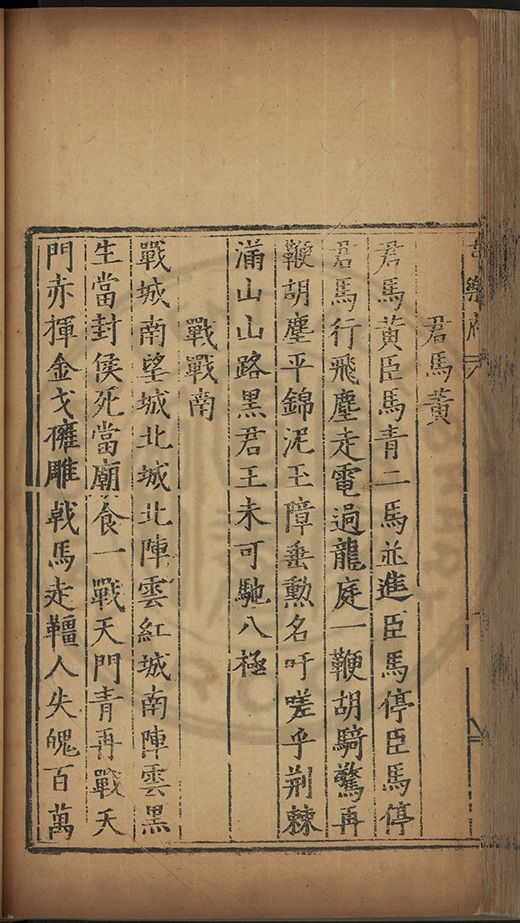 君馬黃
君馬黃臣馬青二馬並進臣馬停臣馬停
君馬行飛塵走電過龍庭一鞭胡騎驚再
鞭胡塵平錦泥王障垂勳名吁嗟乎荆棘
滿山山路黑君王未可馳八極
戰戰南
戰城南望城北城北陣雲紅城南陣雲黑
生當封侯死當廟食一戰天門青再戰天
門赤揮金戈擁雕戟馬走韁人失魄百萬